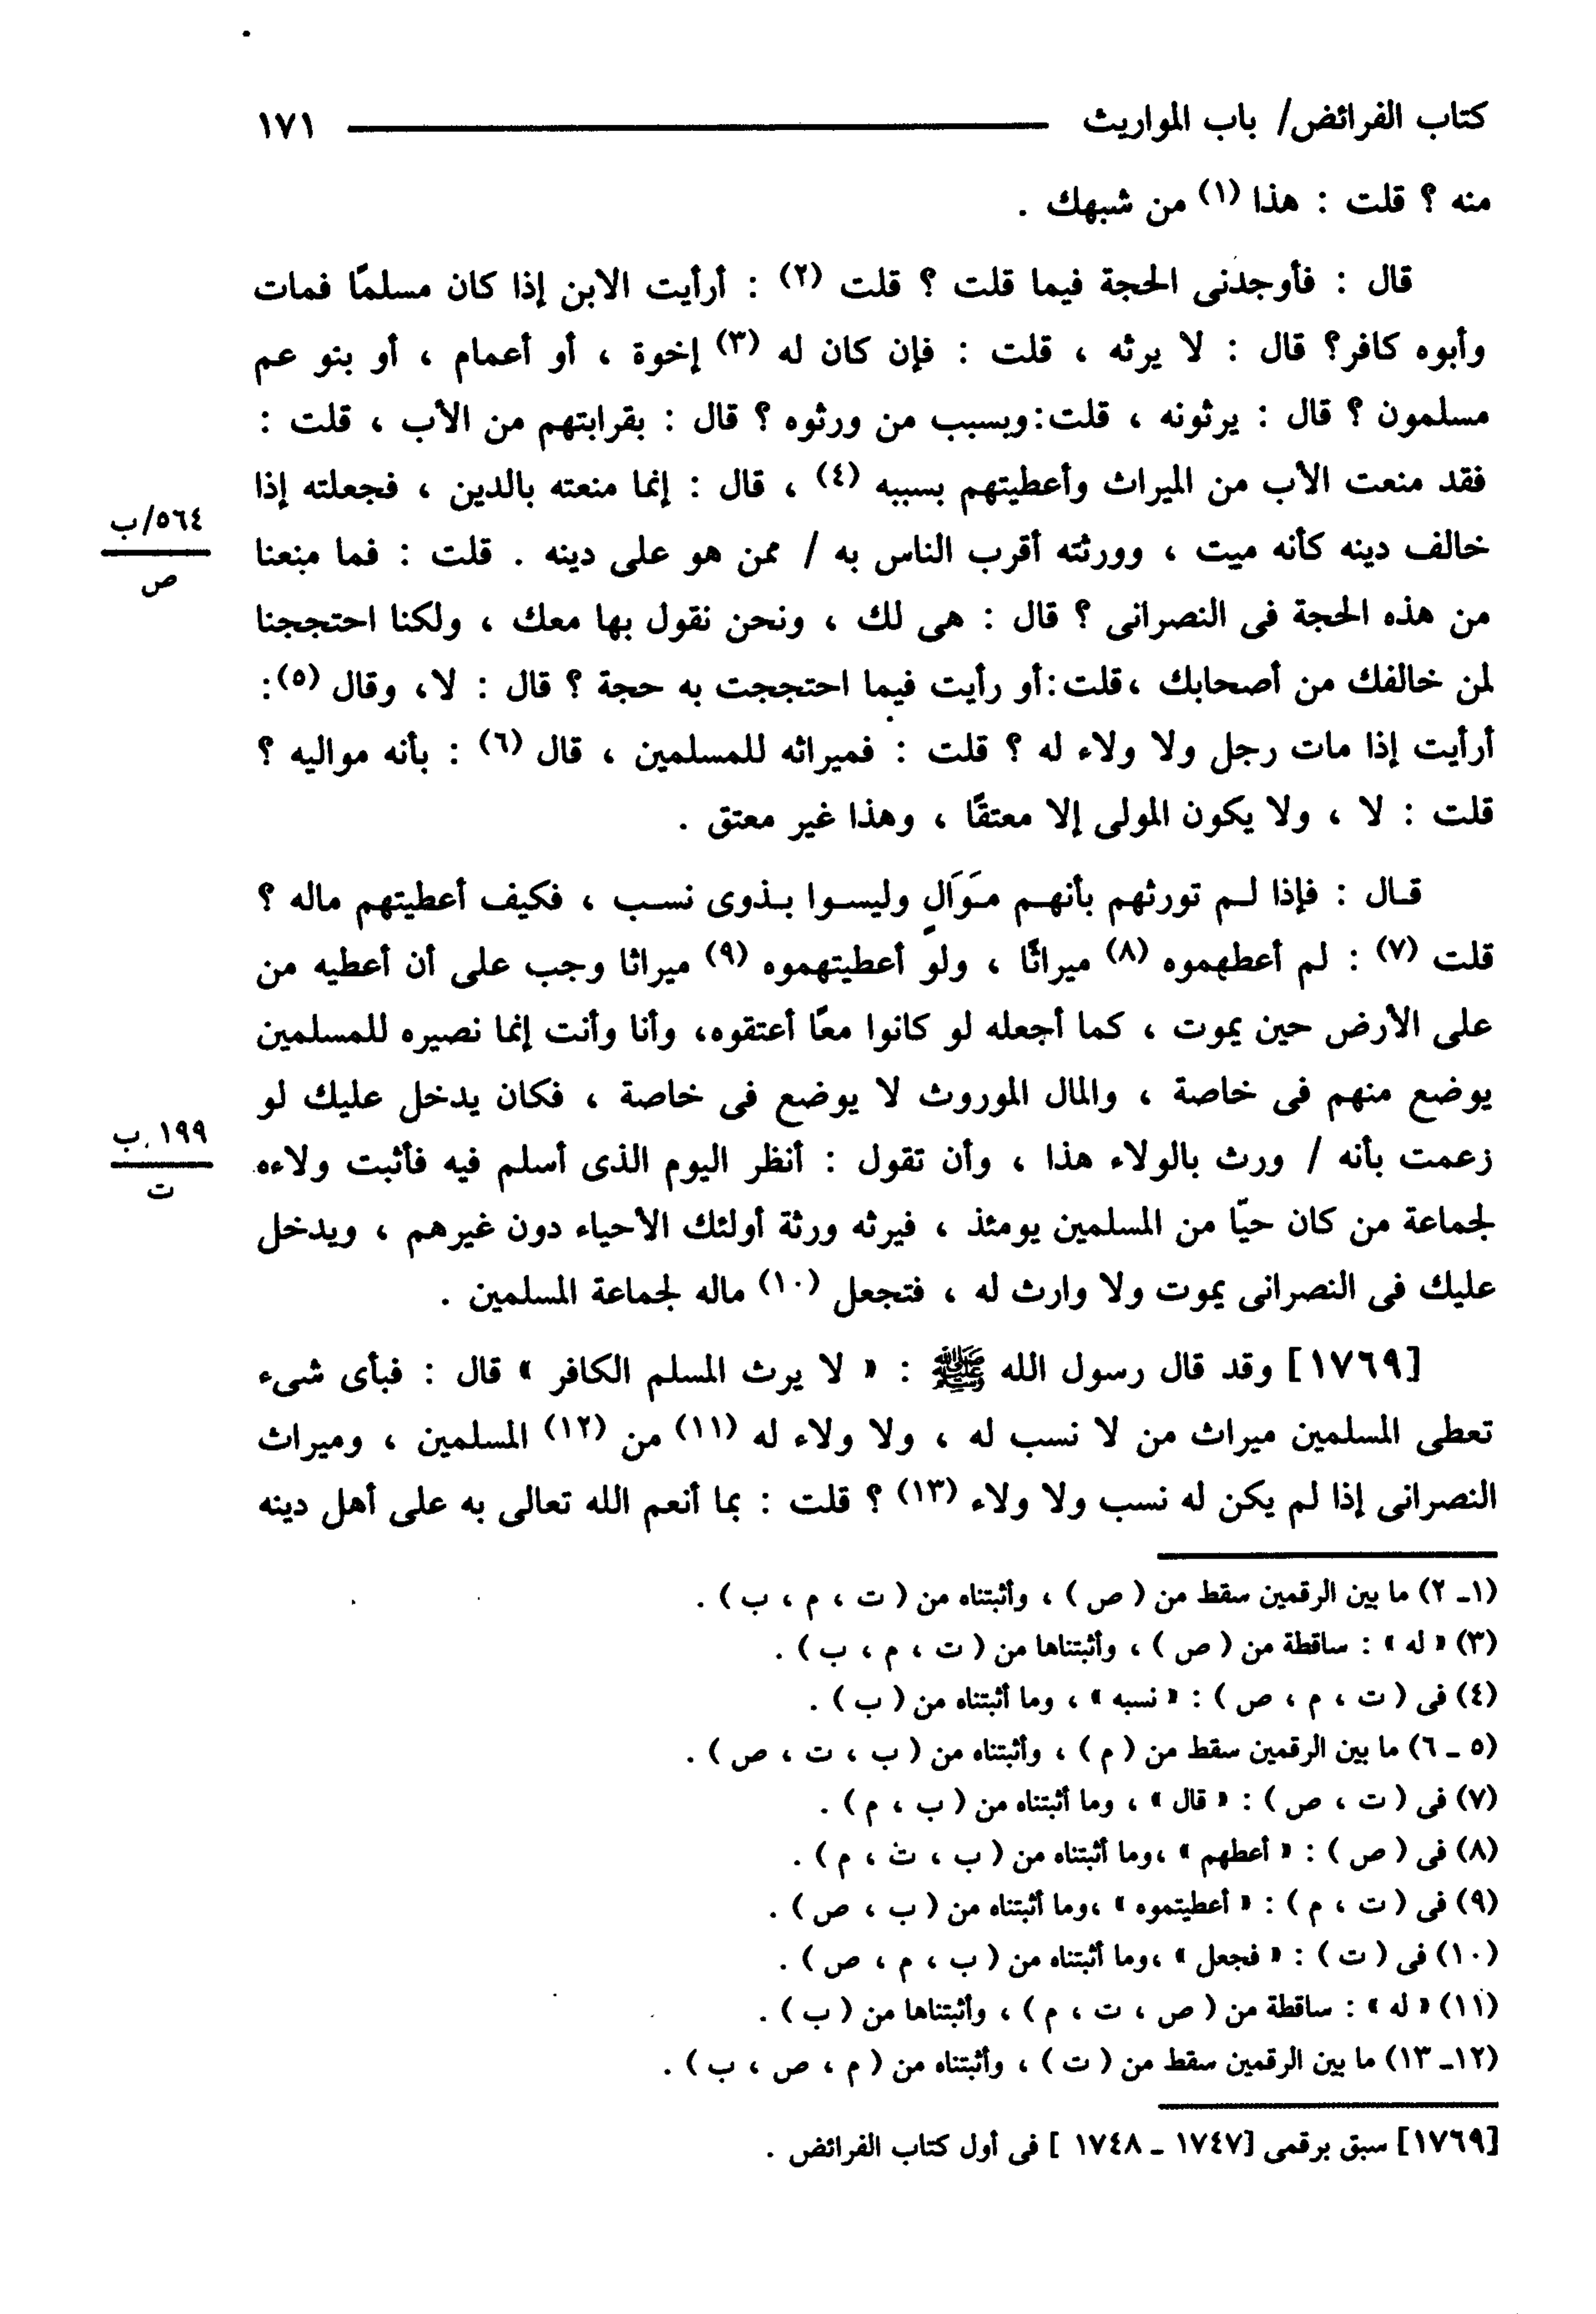 كتاب الفرائض/ باب المواريث ١٧١
منه ؟ قلت : هذا (١) من شبهك .
قال : فأوجدنى الحجة فيما قلت ؟ قلت (٢) : أرأيت الابن إذا كان مسلمًا فمات
وأبوه كافر؟ قال : لا يرثه ، قلت : فإن كان له (٣) إخوة ، أو أعمام ، أو بنو عم
مسلمون ؟ قال : يرثونه ، قلت:وبسبب من ورثوه ؟ قال : بقرابتهم من الأب ، قلت :
فقد منعت الأب من الميراث وأعطيتهم بسببه (٤) ، قال : إنما منعته بالدين ، فجعلته إذا
خالف دينه كأنه ميت ، وورثته أقرب الناس به / ممن هو على دينه . قلت : فما منعنا
٥٦٤/ب
ص
من هذه الحجة فى النصرانى ؟ قال : هى لك ، ونحن نقول بها معك ، ولكنا احتججنا
لمن خالفك من أصحابك ،قلت:أو رأيت فيما احتججت به حجة ؟ قال : لا، وقال (٥):
أرأيت إذا مات رجل ولا ولاء له ؟ قلت : فميراثه للمسلمين ، قال (٦) : بأنه مواليه ؟
قلت : لا ، ولا يكون المولى إلا معتقًا ، وهذا غير معتق .
قال : فإذا لم تورثهم بأنهم مَوَالٍ وليسوا بذوى نسب ، فكيف أعطيتهم ماله ؟
قلت (٧) : لم أعطهموه (٨) ميراثًا ، ولو أعطيتهموه (٩) ميراثا وجب على أن أعطيه من
على الأرض حين يموت ، كما أجعله لو كانوا معًا أعتقوه، وأنا وأنت إنما نصيره للمسلمين
يوضع منهم فى خاصة ، والمال الموروث لا يوضع فى خاصة ، فكان يدخل عليك لو
زعمت بأنه / ورث بالولاء هذا ، وأن تقول : أنظر اليوم الذى أسلم فيه فأثبت ولاءه
١٩٩.ب
ت
لجماعة من كان حيّا من المسلمين يومئذ ، فيرثه ورثة أولئك الأحياء دون غيرهم ، ويدخل
عليك فى النصرانى يموت ولا وارث له ، فتجعل (١٠) ماله لجماعة المسلمين .
[١٧٦٩] وقد قال رسول الله ﷺ : « لا يرث المسلم الكافر » قال : فبأى شىء
تعطى المسلمين ميراث من لا نسب له ، ولا ولاء له (١١) من (١٢) المسلمين ، وميراث
النصرانى إذا لم يكن له نسب ولا ولاء (١٣) ؟ قلت : بما أنعم الله تعالى به على أهل دينه
(١ـ ٢) ما بين الرقمين سقط من ( ص ) ، وأثبتناه من ( ت ، م ، ب ) .
(٣) « له » : ساقطة من ( ص ) ، وأثبتناها من ( ت ، م ، ب ) .
(٤) فى ( ت ، م ، ص ) : « نسبه » ، وما أثبتناه من ( ب ) .
(٥ ـ ٦) ما بين الرقمين سقط من ( م ) ، وأثبتناه من ( ب ، ت ، ص ) .
(٧) فى ( ت ، ص ) : « قال » ، وما أثبتناه من ( ب ، م ) .
(٨) فى ( ص ) : « أعطهم » ،وما أثبتناه من ( ب ، ت ، م ) .
(٩) فى ( ت ، م ) : « أعطيتموه » ،وما أثبتناه من ( ب ، ص ) .
(١٠) فى ( ت ) : « فجعل » ،وما أثبتناه من ( ب ، م ، ص ) .
(١١) « له » : ساقطة من ( ص ، ت ، م ) ، وأثبتناها من ( ب ) .
(١٢ـ ١٣) ما بين الرقمين سقط من ( ت ) ، وأثبتناه من ( م ، ص ، ب ) .
[١٧٦٩] سبق برقمى [١٧٤٧ ـ ١٧٤٨ ] فى أول كتاب الفرائض .